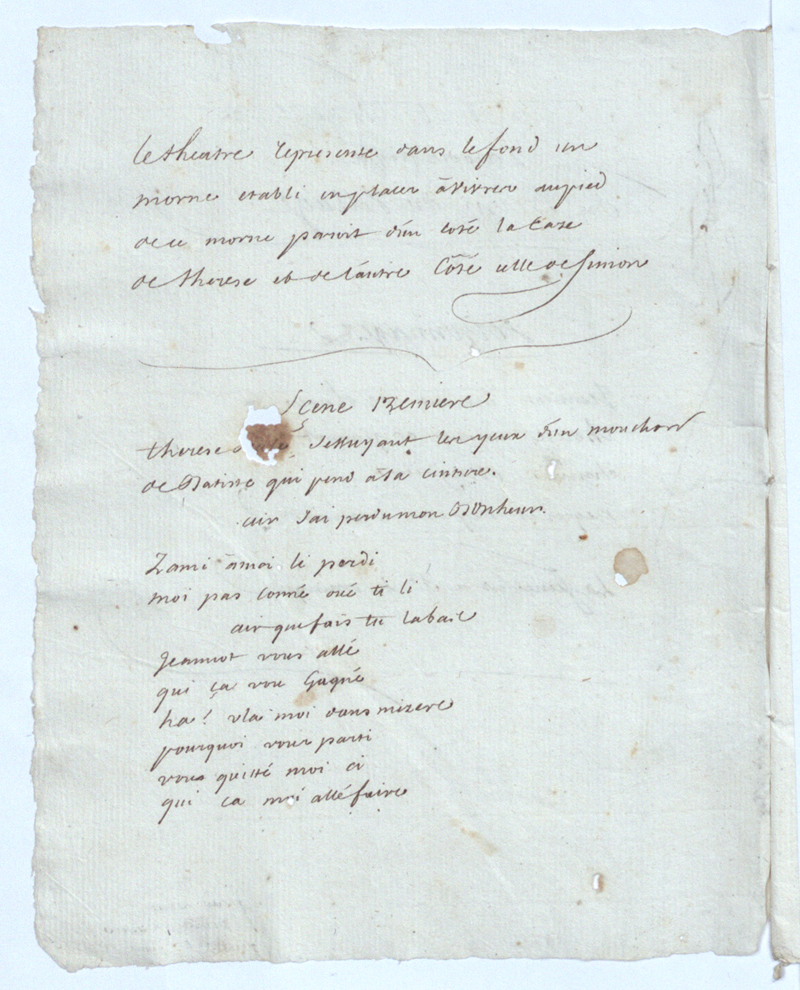 le theatre represente dans le fond un
morne etabli en places à vivres au pied
de ce morne paroit d'un coté la Case
de therese et de l'autre Côté celle de Simon
Scene 1ere
therese s'essuyant les yeux d'un mouchoir
de Batiste qui pend a sa cinture.
air J'ai perdu mon Bonheur.
Zami à moi li perdi
moi pas conné oué ti li
air que fais tu labas
Jeannot vous allé
qui ça vou Gagné
ha! vla moi dans misere
pourquoi vous parti
vous quitté moi ci
qui ça moi allé faire